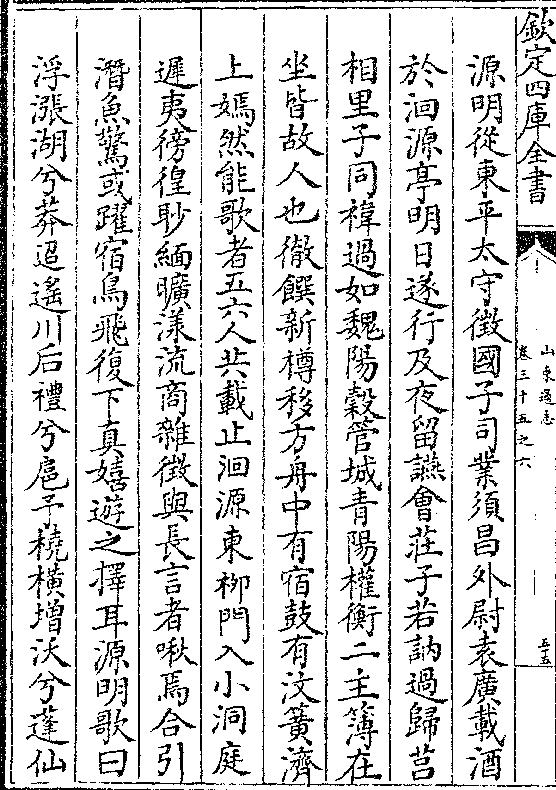 欽定四庫全書
山東通志
卷三十五之六
五五
源明從東平太守徵國子司業須昌外尉袁廣載酒
於洄源亭明日遂行及夜留讌會莊子若訥過歸莒
相里子同禕過如魏陽穀管城青陽權衡二主簿在
坐皆故人也徹饌新樽移方舟中有宿鼓有汶簧濟
上嫣然能歌者五六人共載止洄源東柳門入小洞庭
遲夷徬徨眇緬曠漾流商雜徵與長言者啾焉合引
潛魚驚或躍宿鳥飛復下真嬉遊之擇耳源明歌曰
浮漲湖兮莽迢遙川后禮兮扈予橈橫增沃兮蓬仙